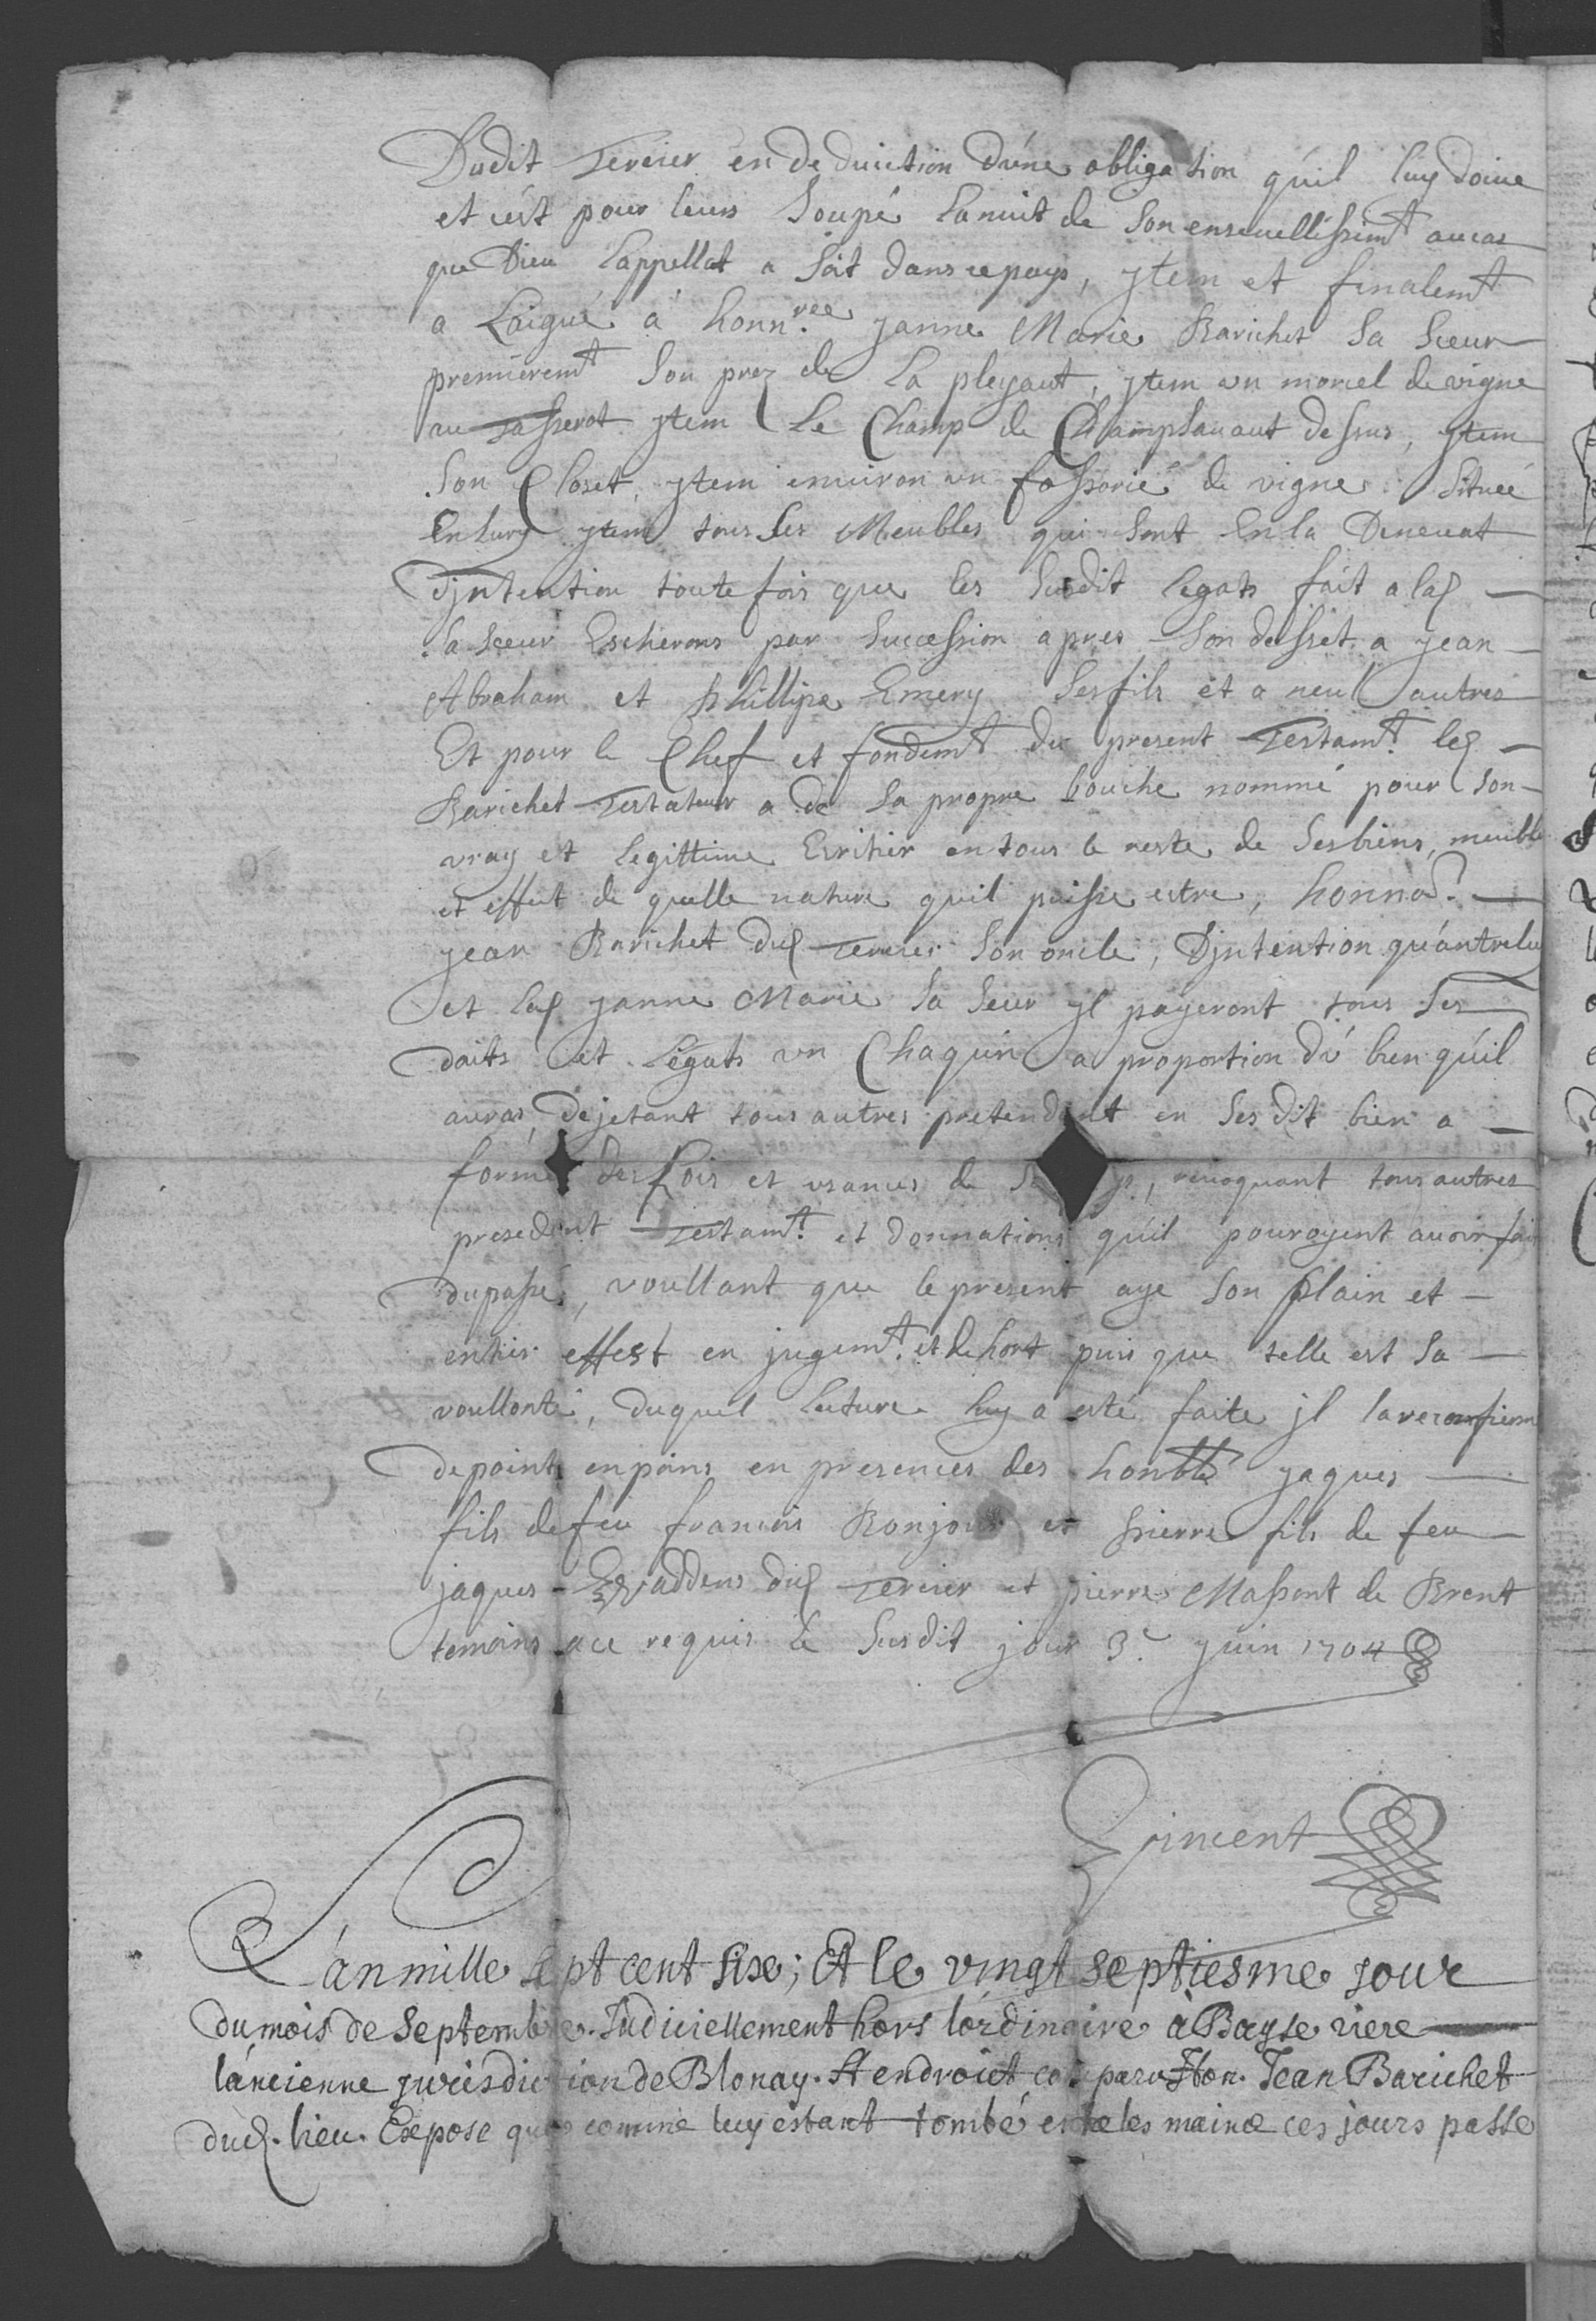 Dudit Tercier en deduiction d'úne obligation qúil luy doiue
et cést pour leurs Soupé la nuit de Son enseuellissemt aucas
que Dieu Lappellat a Soit dans ce pays, ytem et finalemt
a Láigué á honn.rée yanne Marie Barichet Sa Sœur
premièremt Son prez de La pleyaut, ytem un morcel de vigne
au Tasserot ytem Le Champ de Champsauaut dessus, ytem
Son Closet, ytem enuiron un fossorié de vigne Située
En Lury ytem tous Ses Meubles qui Sont En la Deneuat
Djntention toute fois que les Susdit legats fáit a lad
Sa Sœur Escherons par Succession apres Son desset a yean
Abraham et phillipe Emery Ses fils et a neul autres
Et pour le Chef et fondemt du present Testamt. led
Barichet Testateur a de Sa propre bouche nommé pour Son
vray et legittime Eiritier en tous le reste de Ses biens, meuble
et effect de quelle nature quil puisse estre, honnod.
yean Barichet dud Tercier Son oncle, Djntention qu'antreluy
et lad yanne Marie Sa Seur yl payeront tous Ses
daits et Légats un Chaqún a proportion dú bien qúil
auras, dejetant tous autres pretendant en Ses dit bien a
forme des Lois et usances de revoquant tous autres
presedent Testamt. et donnations qúil pouroyent auoir fai
du passé, voullant que le present aye Son plain et
entier effest en jugemt. et dehort puis que telle est Sa
voullonté, duquel lecture luy a esté faite jl la reconfirm
de point en poins en presences des honbles yaques
fils de feu francois Bonjour et pierre fils de feu
jaques Dewaddens dud Tercier et pierre Massont de Brent
temoins a ce requis le Susdit jour 3e. yuin 1704
Vincent
L'án mille Sept cent Sixe; Et le vingt septiesme jour
du mois de Septembre. Judiciellement hors lórdinaire à Bayse riere
láncienne jurisdiction de Blonay. A endroict comparu Hon. Jean Barichet
dud. lieu. Expose que comme luy estant tombé entre les mainx ces jours passe